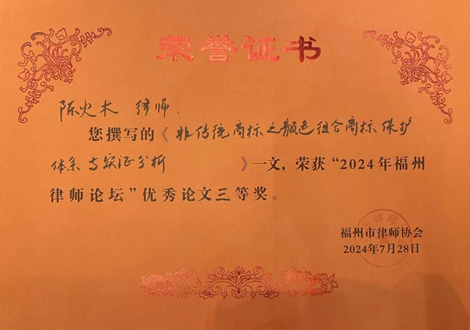 荣誉证书
陈火木 律师:
您撰写的《非传统商标之颜色组合商标保护
体系与实证分析 》一文,荣获“2024年福州
律师论坛”优秀论文三等奖。
福州市律师协会
2024年7月28日